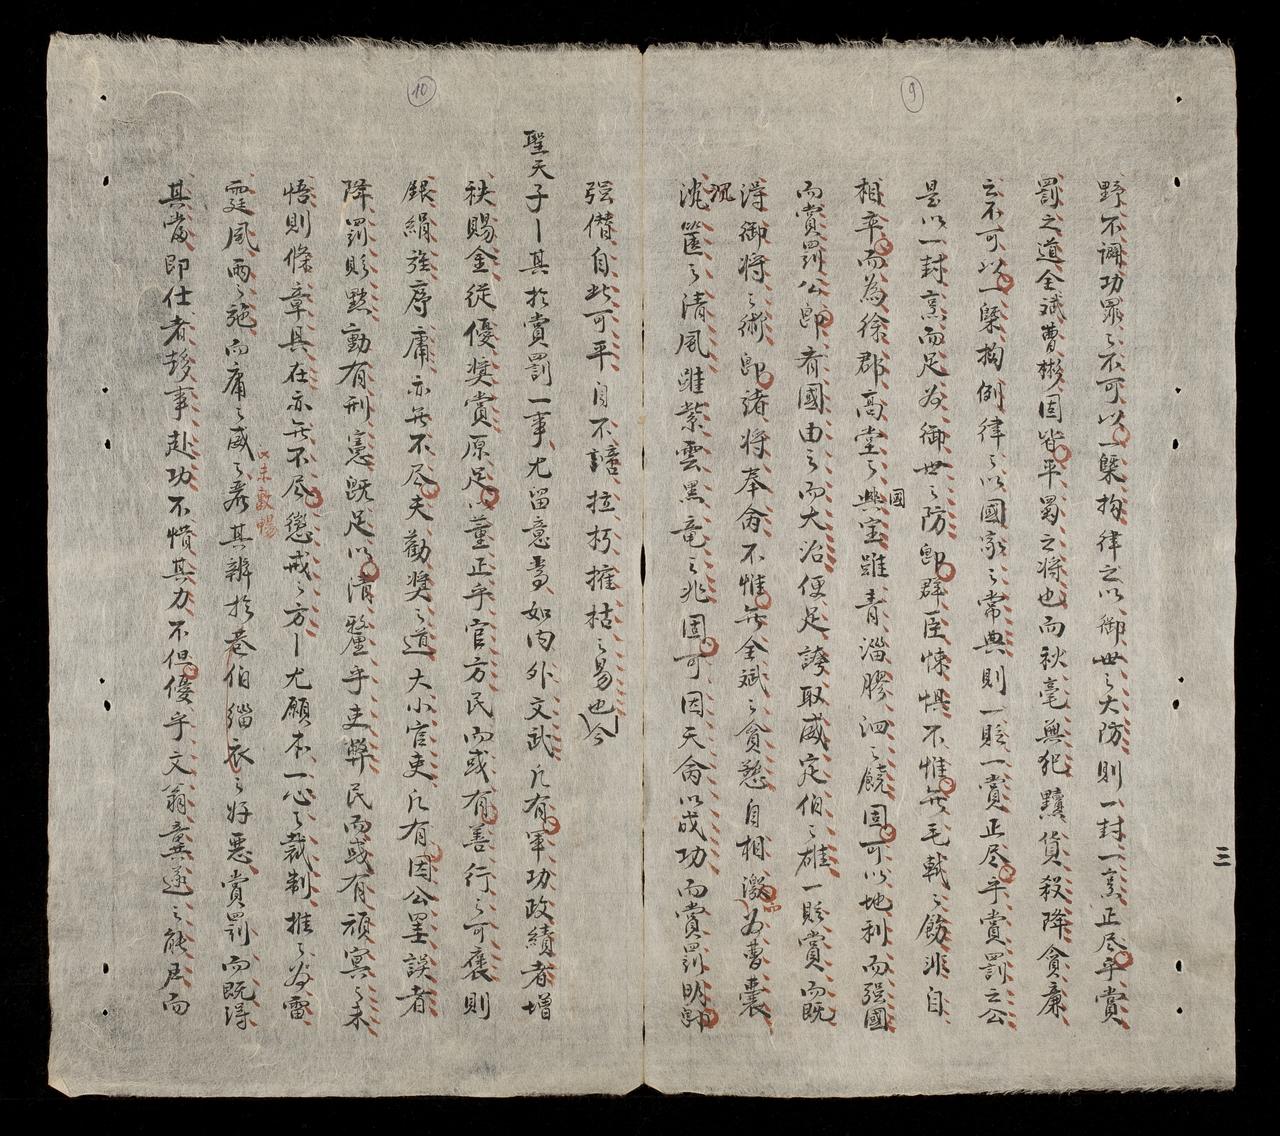 9
野不調功罪之不可以一槩拘律之以御世之大防則一封一烹正尽乎賞
罰之道全斌曹彬固皆平蜀之将也而秋毫無犯黷貨殺降貪廉
之不可以一槩拘例律之以國家之常典則一貶一賞正尽乎賞罰之公
是以一封烹而足为御世之防即群臣悚惧不惟無毛戟之餙非自
相率而為徐郡高堂之興國宝雖青淄膠泗之饒固可以地利而强國
而賞罰公即齐國由之而大治便足誇取威定伯之雄一貶賞而既
得御将之術即诸将奉命不惟無全斌之貪慾自相激而为曹囊
沈沉篋之清風雖紫雲黑竜之兆固可因天命以成功而賞罰明即
强僭自此可平自不諳拉朽摧枯之易也今
三
10
聖天子丨其於賞罰一事尤留意焉如内外文武凡有軍功政績者增
秩賜金従優奨賞原足以董正乎官方民而或有善行之可褒則
銀絹旌序庸亦無不尽夫勸奨之道大小官吏凡有因公罣誤者
降罰貶黜動有刑憲既足以清釐乎吏弊民而或有頑冥之未
悟則條章具在亦無不尽懲戒之方丨尤願本一心之裁制推之为雷
霆風雨之施而庸之威之彰其辨於巷伯緇衣之好惡賞罰而既得
以未敢暢
其當即仕者趍事赴功不惜其力不但優乎文翁龔遂之能民而